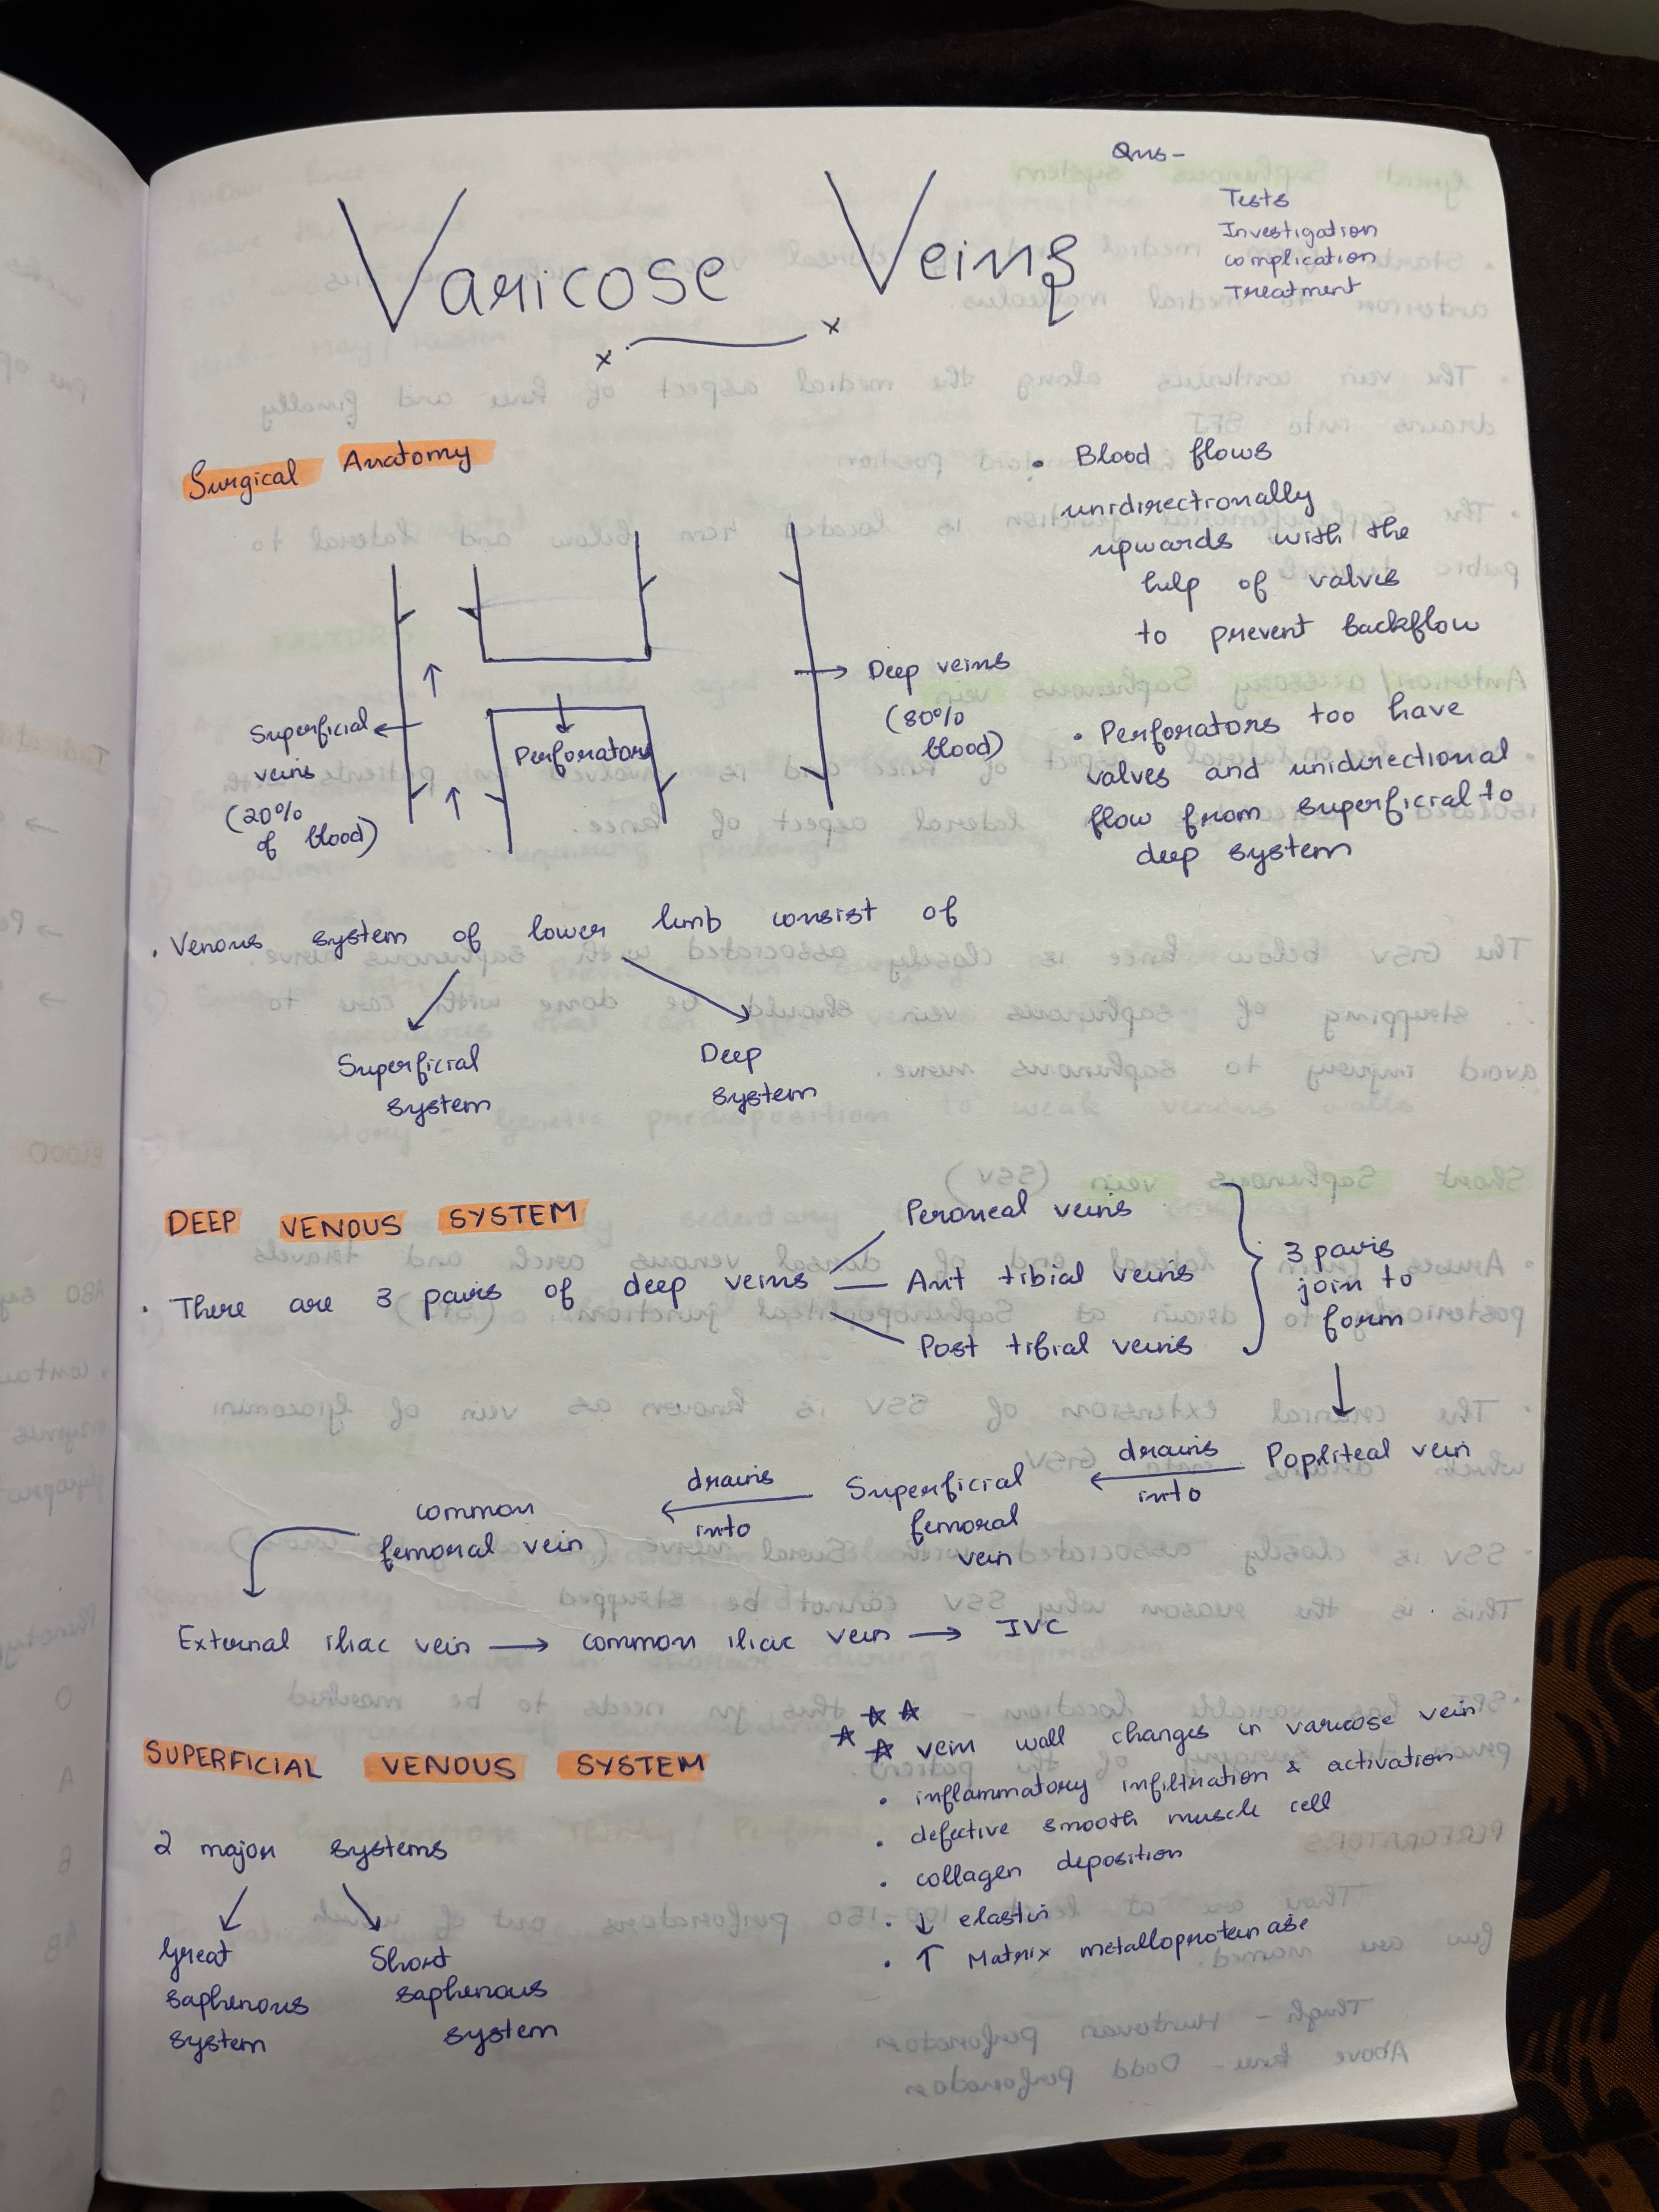 Qns-
Tests
Investigation
complication
Treatment
Varicose Veins
Surgical Anatomy
• Blood flows
unidirectionally
upwards with the
help of valves
to prevent backflow
Superficial
veins
(20%
of blood)
Perforators
Deep veins
(80%
blood)
• Perforators too have
valves and unidirectional
flow from superficial to
deep system
• Venous system of lower limb consist of
Superficial
system
Deep
system
DEEP VENOUS SYSTEM
• There are 3 pairs of deep veins
Peroneal veins
Ant tibial veins
Post tibial veins
3 pairs
join to
form
Popliteal vein
drains
into
Superficial
femoral
vein
drains
into
common
femoral vein
External iliac vein → common iliac vein → IVC
SUPERFICIAL VENOUS SYSTEM
2 major systems
Great
saphenous
system
Short
saphenous
system
vein wall changes in varicose vein
• inflammatory infiltration & activation
• defective smooth muscle cell
• collagen deposition
• ↓ elastin
• ↑ Matrix metalloproteinase